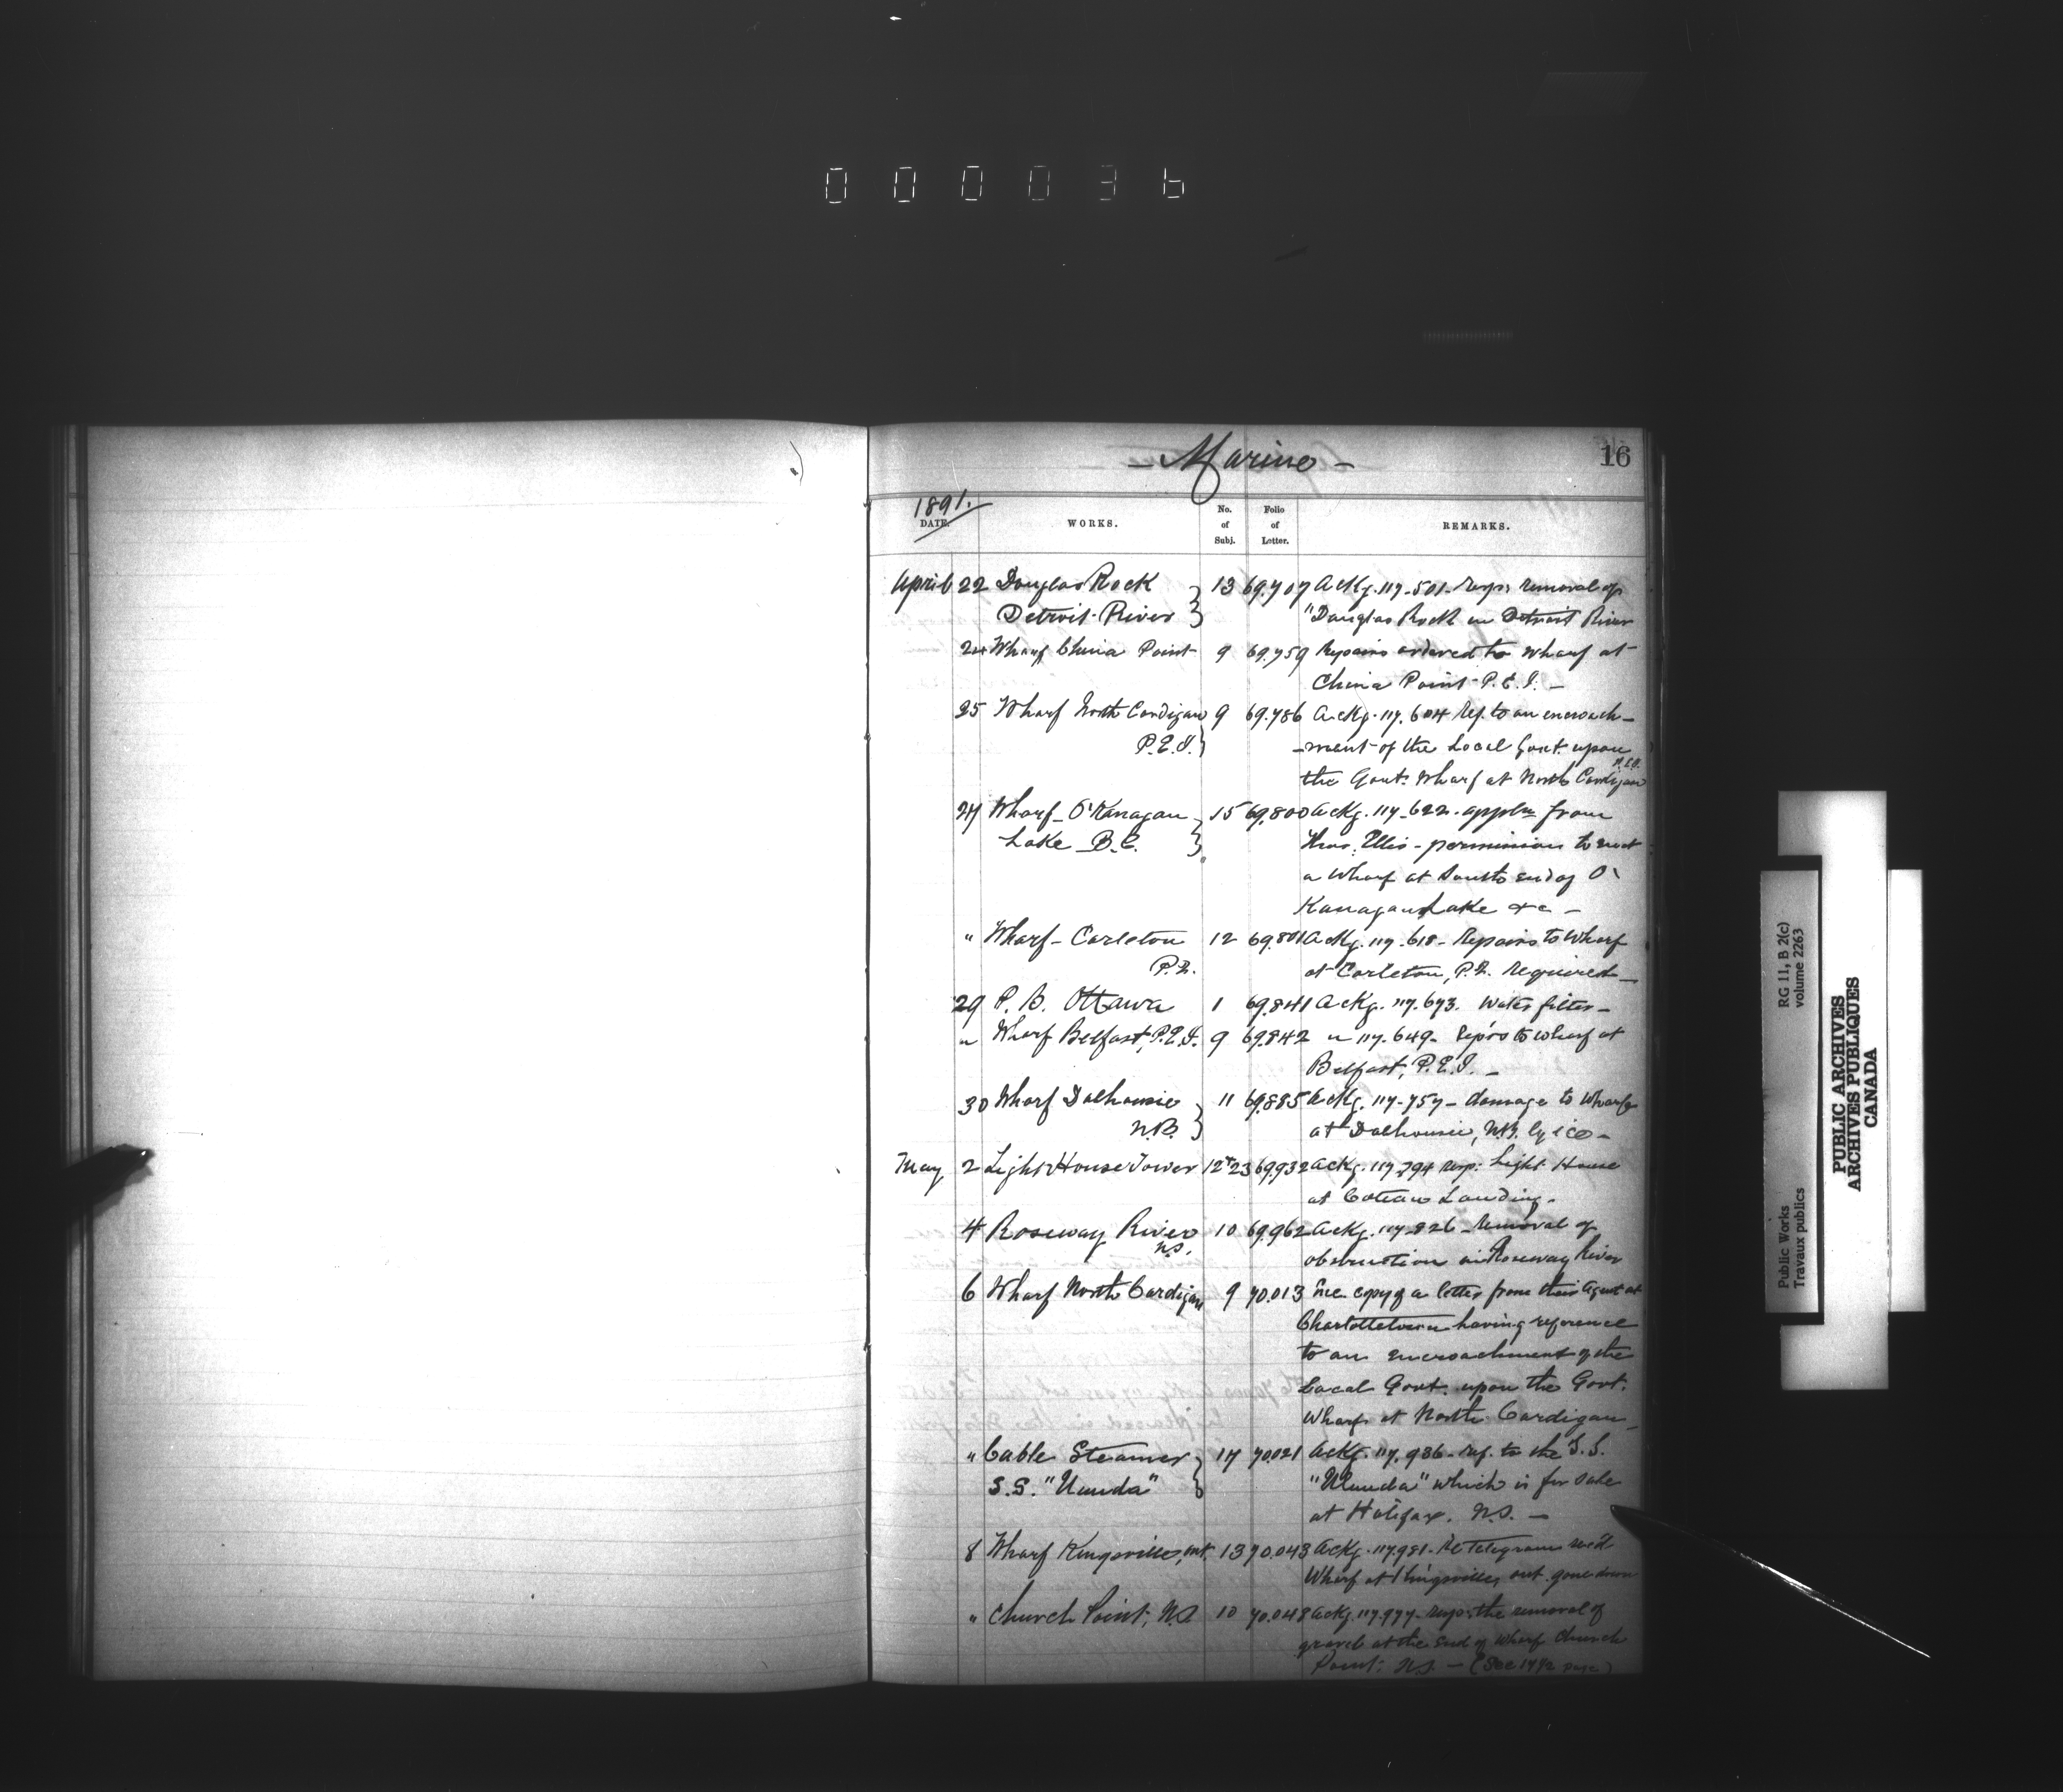 000036
- Marine -
16
1891.
DATE. WORKS. No. of Subj. Folio of Letter. REMARKS.
April 22 Douglas Rock } 13 69.707 Ackg. 117.501. resp: removal of
Detroit River } "Douglas Rock in Detroit River
24 Wharf China Point 9 69.759 Repairs ordered to wharf at
China Point P.E.I. -
25 Wharf North Cardigan } 9 69.786 Ackg. 117.604 ref. to an encroach-
P.E.I. } -ment of the Local Govt. upon
the Govt. Wharf at North Cardigan P.E.I.
27 Wharf - O'Kanagan } 15 69.800 Ackg. 117.622. appln from
Lake B.C. } Thos. Ellis - permission to erect
a wharf at South end of O'
Kanagan Lake &c -
" Wharf - Carleton 12 69.801 Ackg. 117.618 - Repairs to Wharf
P.Q. at Carleton, P.Q. required -
29 P. B. Ottawa 1 69.841 Ackg. 117.673. Water filter -
" Wharf Belfast, P.E.I. 9 69.842 " 117.649. Rep'rs to wharf at
Belfast, P.E.I. -
30 Wharf Dalhousie } 11 69.885 Ackg. 117.757 - damage to wharf
N.B. } at Dalhousie, N.B. by ice -
May 2 Light House Tower 12+23 69.932 Ackg. 117.794 resp: Light House
at Coteau Landing -
4 Roseway River 10 69.962 Ackg. 117.826 - removal of
N.S. obstruction in Roseway River
6 Wharf North Cardigan 9 70.013 Inc. copy of a letter from their Agent at
Charlottetown having reference
to an encroachment of the
Local Govt. upon the Govt.
Wharf at North Cardigan -
" Cable Steamer } 17 70.021 Ackg. 117.936 - ref. to the S.S.
S.S. "Ulunda" } "Ulunda" which is for sale
at Halifax. N.S. -
8 Wharf Kingsville, ont. 13 70.043 Ackg. 117.981. Re telegram rec'd
Wharf at Kingsville, ont. gone down
" Church Point, N.S. 10 70.048 Ackg. 117.977 - resp: the removal of
gravel at the end of wharf Church
Point: N.S. - (See 17 1/2 page)
Public Works RG 11, B 2(c)
Travaux publics volume 2263
PUBLIC ARCHIVES
ARCHIVES PUBLIQUES
CANADA